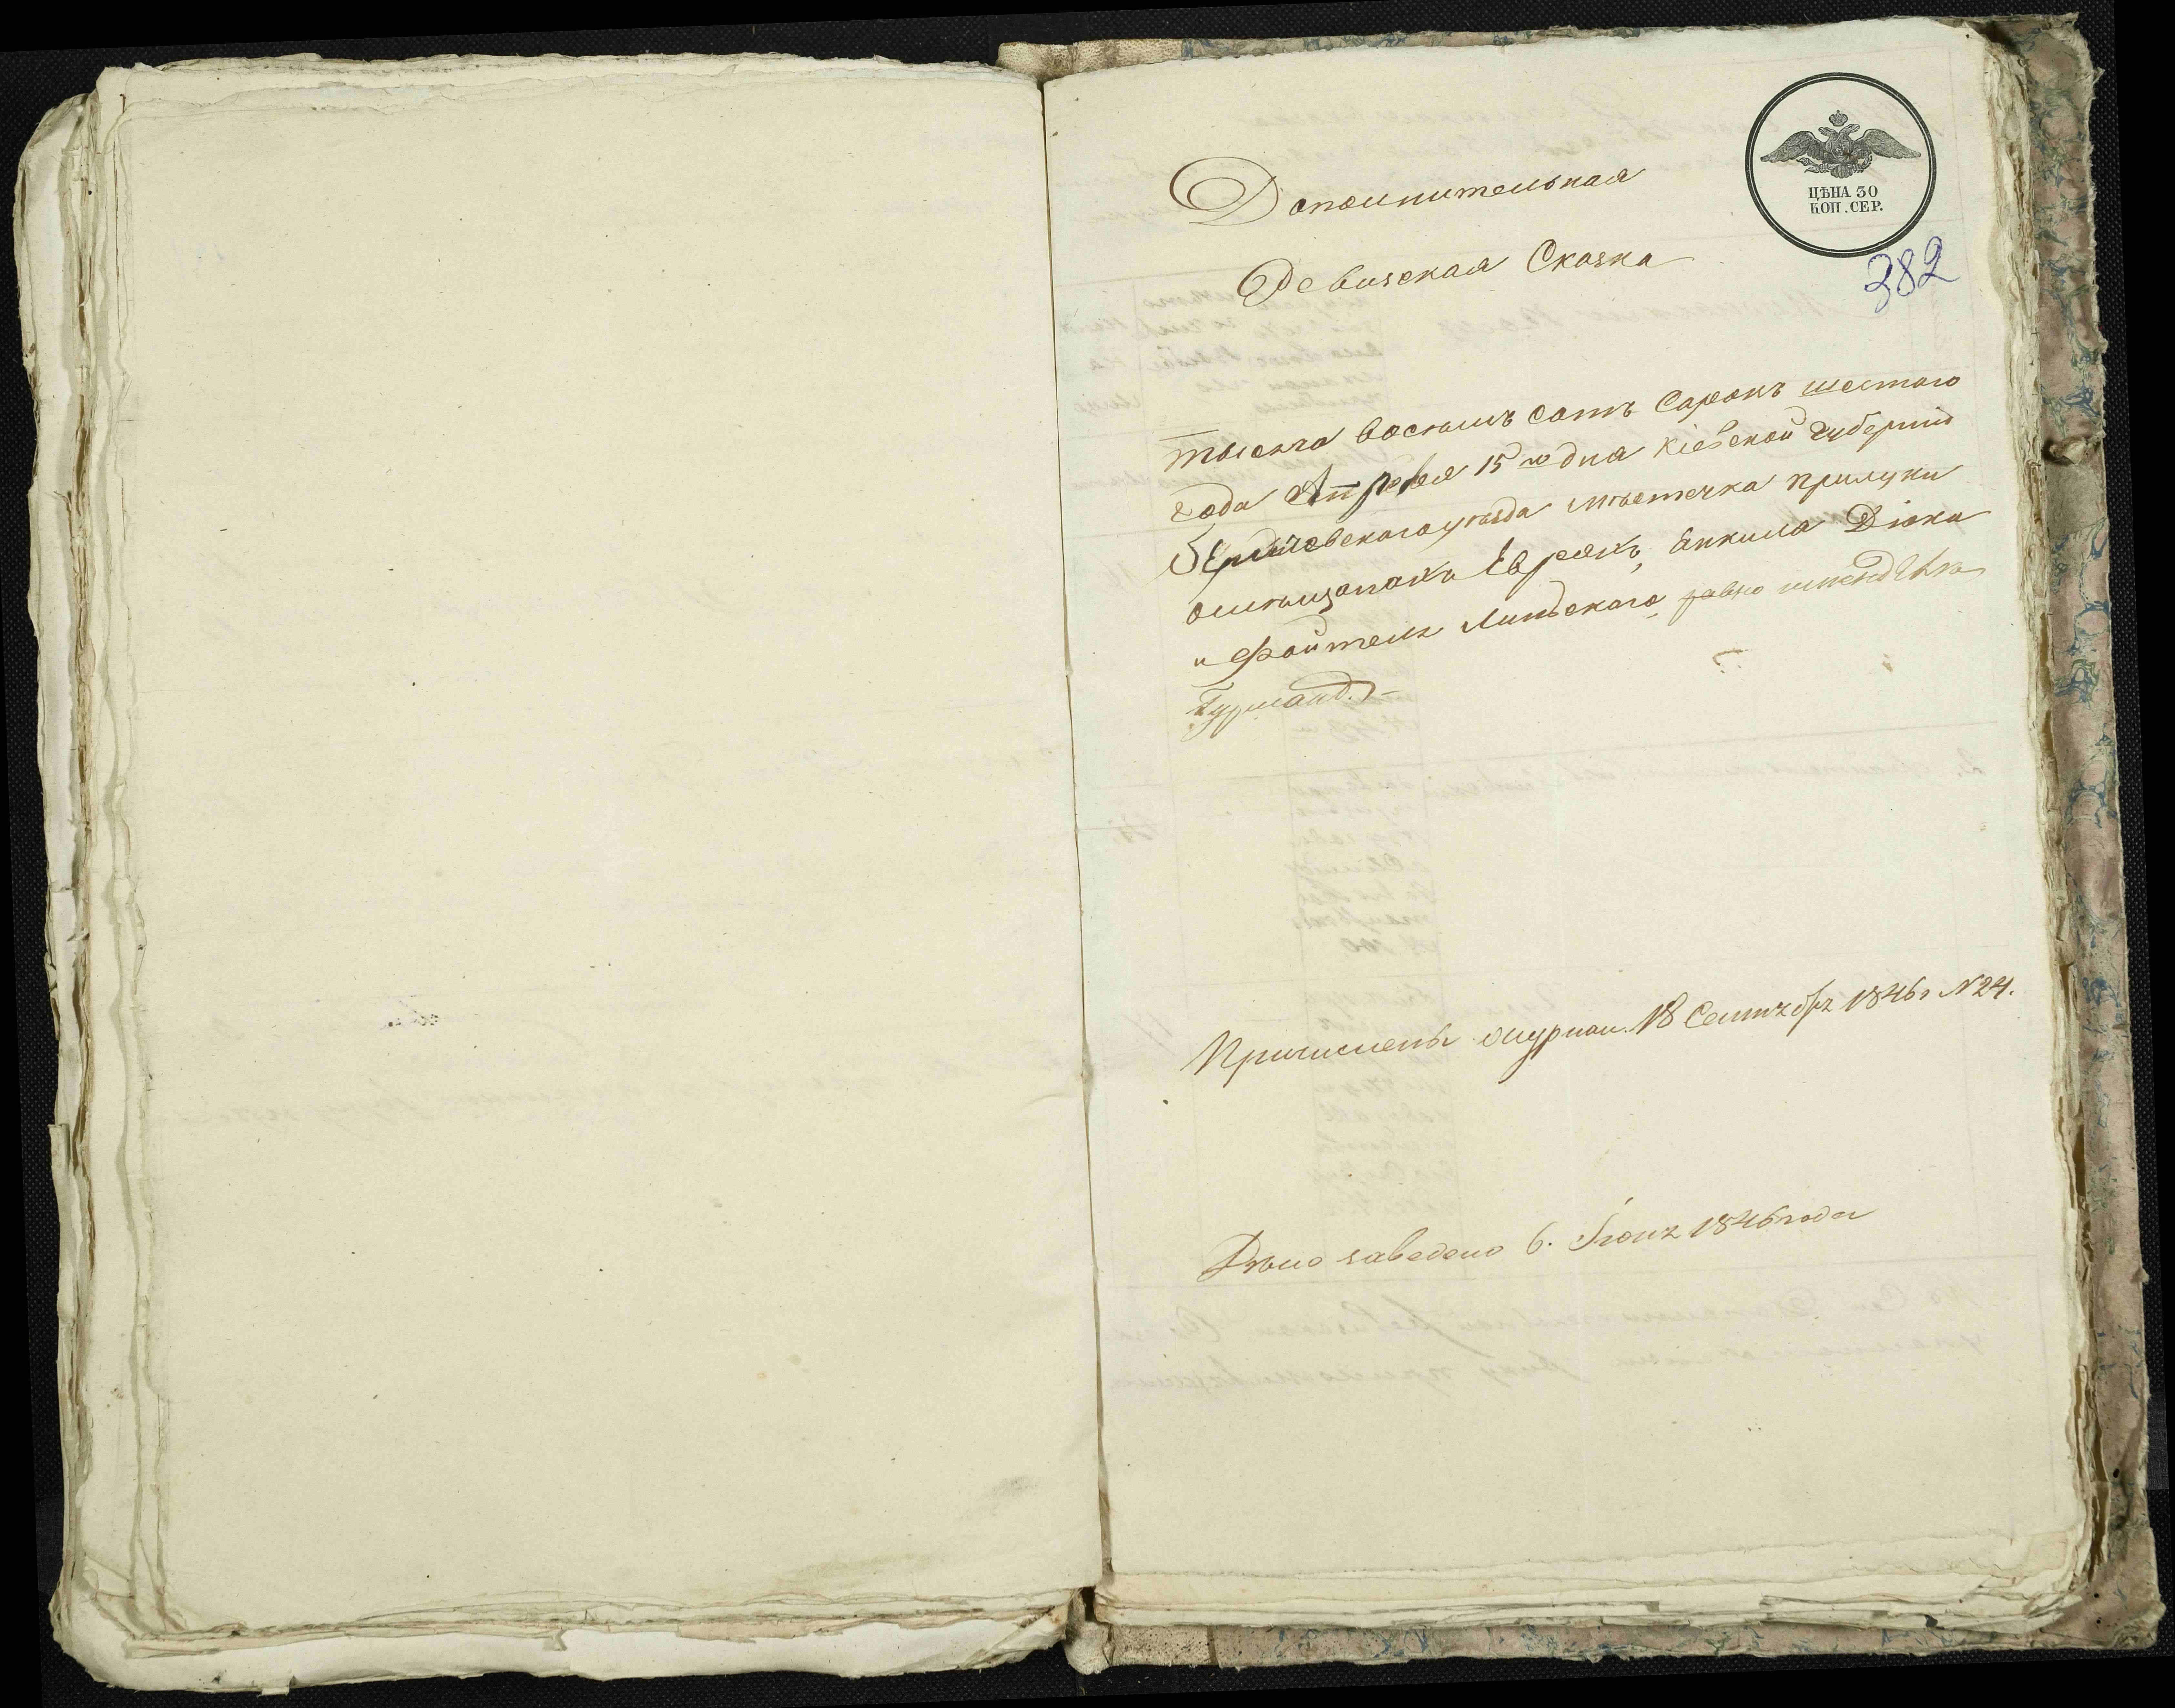 ЦѢНА 30
КОП. СЕР.
382
Дополнительная
Ревизская Сказка
Тысяча восемь сотъ сорокъ шестаго
года Апреля 15 го дня Кіевской Губерніи
Бердичевскаго уѣзда мѣстечка Прилуки
о мѣщанахъ Евреяхъ, Янкила Дюка
и Файтеля Липскаго, равно
Гурманд.
Причислены журнал. 18 Сентября 1846 г N 24.
Дѣло заведено 6. Іюня 1846 года